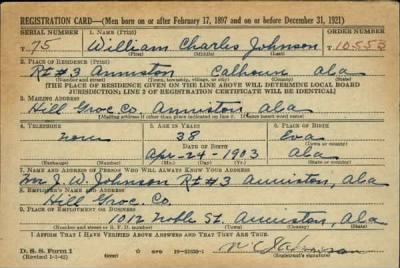 REGISTRATION CARD—(Men born on or after February 17, 1897 and on or before December 31, 1921)
SERIAL NUMBER 1. NAME (Print) ORDER NUMBER
T 75 William Charles Johnson 10553
(First) (Middle) (Last)
2. PLACE OF RESIDENCE (Print)
Rt #3 Anniston Calhoun Ala
(Number and street) (Town, township, village, or city) (County) (State)
[THE PLACE OF RESIDENCE GIVEN ON THE LINE ABOVE WILL DETERMINE LOCAL BOARD
JURISDICTION; LINE 2 OF REGISTRATION CERTIFICATE WILL BE IDENTICAL]
3. MAILING ADDRESS
Hill Groc Co. Anniston, Ala
[Mailing address if other than place indicated on line 2. If same insert word same]
4. TELEPHONE 5. AGE IN YEARS 6. PLACE OF BIRTH
none 38 Eva
DATE OF BIRTH (Town or county)
Apr-24-1903 Ala
(Exchange) (Number) (Mo.) (Day) (Yr.) (State or country)
7. NAME AND ADDRESS OF PERSON WHO WILL ALWAYS KNOW YOUR ADDRESS
J. W. Johnson Rt #3 Anniston, Ala
8. EMPLOYER'S NAME AND ADDRESS
Hill Groc. Co.
9. PLACE OF EMPLOYMENT OR BUSINESS
1012 Noble St. Anniston, Ala
(Number and street or R. F. D. number) (Town) (County) (State)
I AFFIRM THAT I HAVE VERIFIED ABOVE ANSWERS AND THAT THEY ARE TRUE.
D. S. S. Form 1
(Revised 1-1-42) (over) W C Johnson
(Registrant's signature)